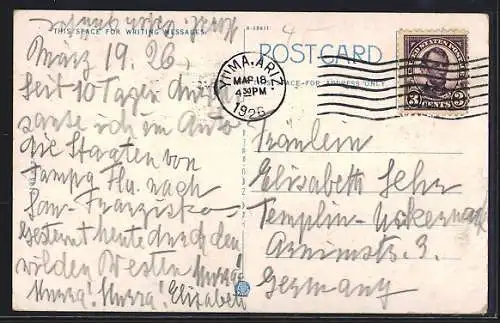 THIS SPACE FOR WRITING MESSAGES
März 19. 26.
Seit 10 Tagen durch-
sause ich im Auto
die Staaten von
Tampa Fla. nach
San-Franzisko-
gestern heute durch den
wilden Westen Hurra!
Hurra! Hurra! Elisabeth
A-28611
4
POST CARD
SPACE FOR ADDRESS ONLY
YUMA, ARIZ.
MAR 18
4 30 PM
1926
UNITED STATES POSTAGE
3 CENTS 3
Fräulein
Elisabeth Sehr
Templin-Uckermark
Arnimstr. 3.
Germany